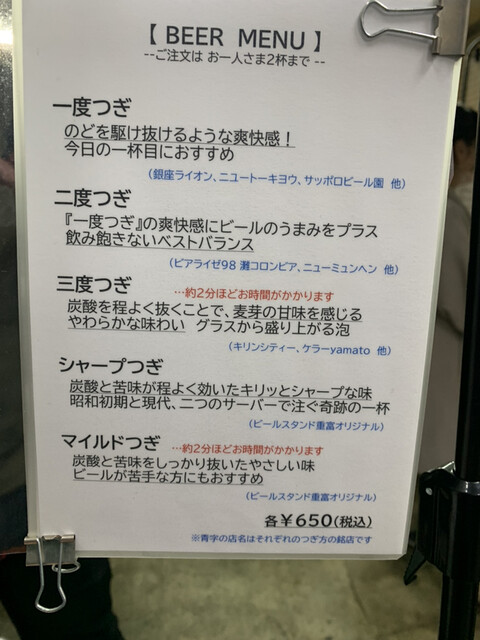 【 BEER MENU 】
--ご注文は お一人さま2杯まで --
一度つぎ
のどを駆け抜けるような爽快感！
今日の一杯目におすすめ
（銀座ライオン、ニュートーキヨウ、サッポロビール園 他）
二度つぎ
『一度つぎ』の爽快感にビールのうまみをプラス
飲み飽きないベストバランス
（ビアライゼ98 灘コロンビア、ニューミュンヘン 他）
三度つぎ …約2分ほどお時間がかかります
炭酸を程よく抜くことで、麦芽の甘味を感じる
やわらかな味わい グラスから盛り上がる泡
（キリンシティー、ケラーyamato 他）
シャープつぎ
炭酸と苦味が程よく効いたキリッとシャープな味
昭和初期と現代、二つのサーバーで注ぐ奇跡の一杯
（ビールスタンド重富オリジナル）
マイルドつぎ …約2分ほどお時間がかかります
炭酸と苦味をしっかり抜いたやさしい味
ビールが苦手な方にもおすすめ
（ビールスタンド重富オリジナル）
各￥650(税込)
※青字の店名はそれぞれのつぎ方の銘店です